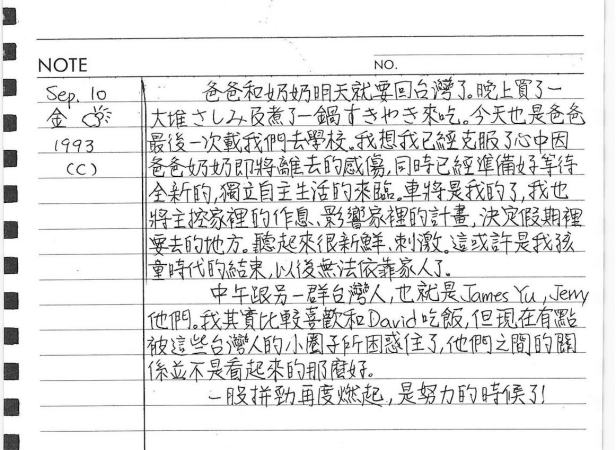 NOTE
NO.
Sep. 10
金
1993
(C)
爸爸和奶奶明天就要回台灣了。晚上買了一
大堆さしみ及煮了一鍋すきやき來吃。今天也是爸爸
最後一次載我們去學校。我想我已經克服了心中因
爸爸奶奶即將離去的感傷,同時已經準備好等待
全新的,獨立自主生活的來臨。車將是我的了,我也
將主控家裡的作息、影響家裡的計畫,決定假期裡
要去的地方。聽起來很新鮮、刺激。這或許是我孩
童時代的結束,以後無法依靠家人了。
中午跟另一群台灣人,也就是James Yu, Jerry
他們。我其實比較喜歡和David吃飯,但現在有點
被這些台灣人的小圈子所困惑住了,他們之間的關
係並不是看起來的那麼好。
一股拼勁再度燃起,是努力的時候了!